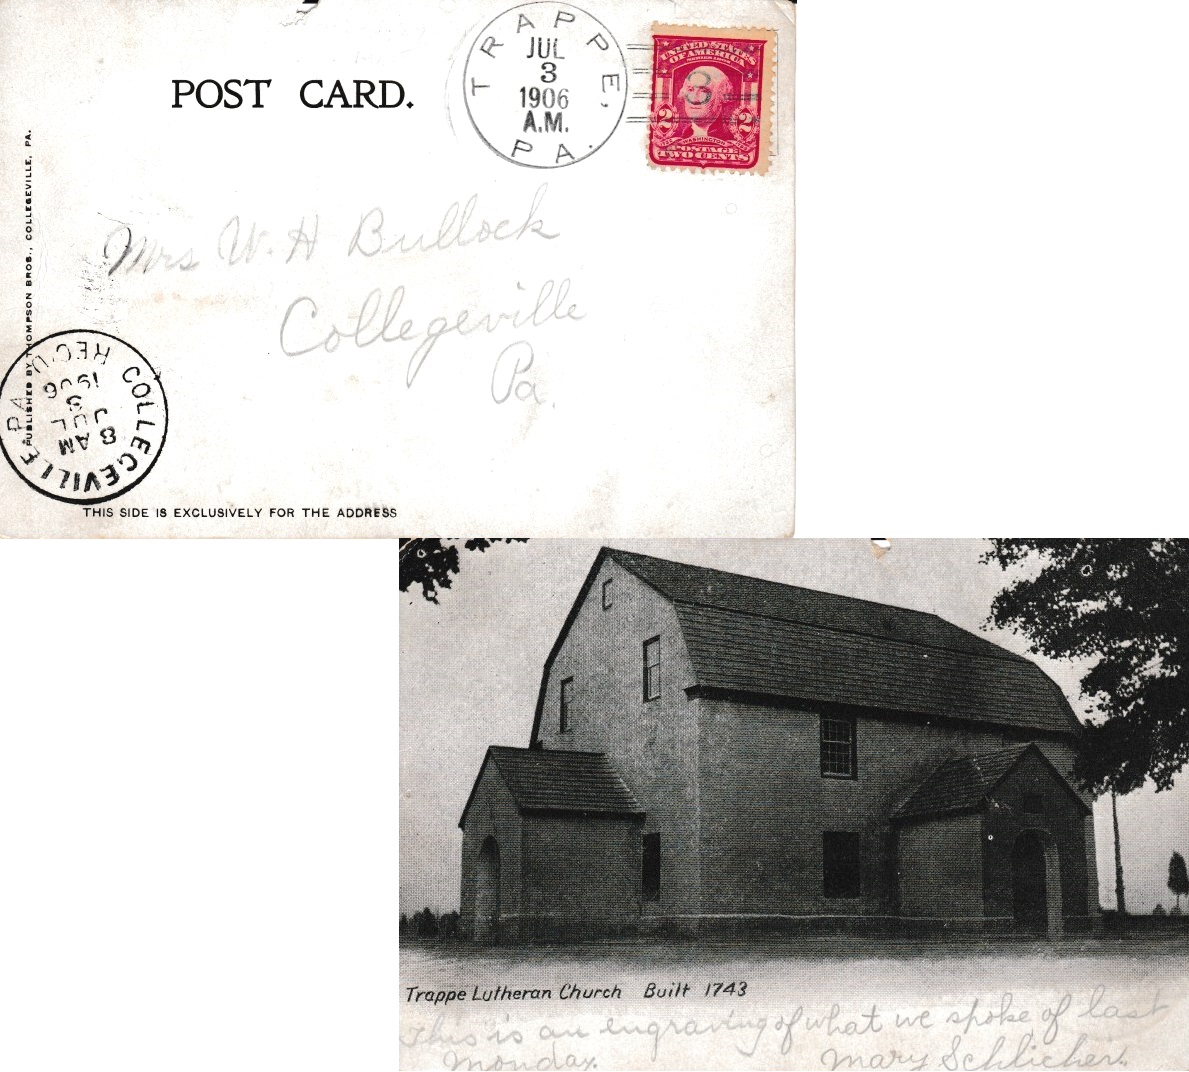 POST CARD.
TRAPPE, PA.
JUL
3
1906
A.M.
3
UNITED STATES
OF AMERICA
2 2
WASHINGTON
POSTAGE
TWO CENTS
PUBLISHED BY THOMPSON BROS., COLLEGEVILLE, PA.
Mrs W. H Bullock
Collegeville
Pa.
COLLEGEVILLE PA.
8 AM
JUL
3
1906
REC'D
THIS SIDE IS EXCLUSIVELY FOR THE ADDRESS
Trappe Lutheran Church Built 1743
This is an engraving of what we spoke of last
Monday. Mary Schlicher.